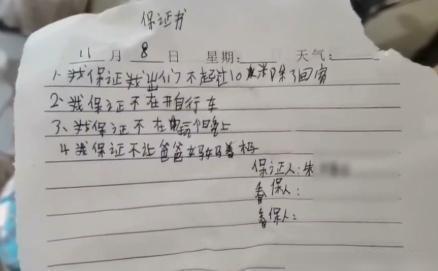 保证书
11月8日 星期: 天气:
1、我保证我出门不超过10 除了回家
2、我保证不在开自行车
3、我保证不在 晚上
4、我保证不让爸爸妈妈着
保证人: 朱
保人:
保人: